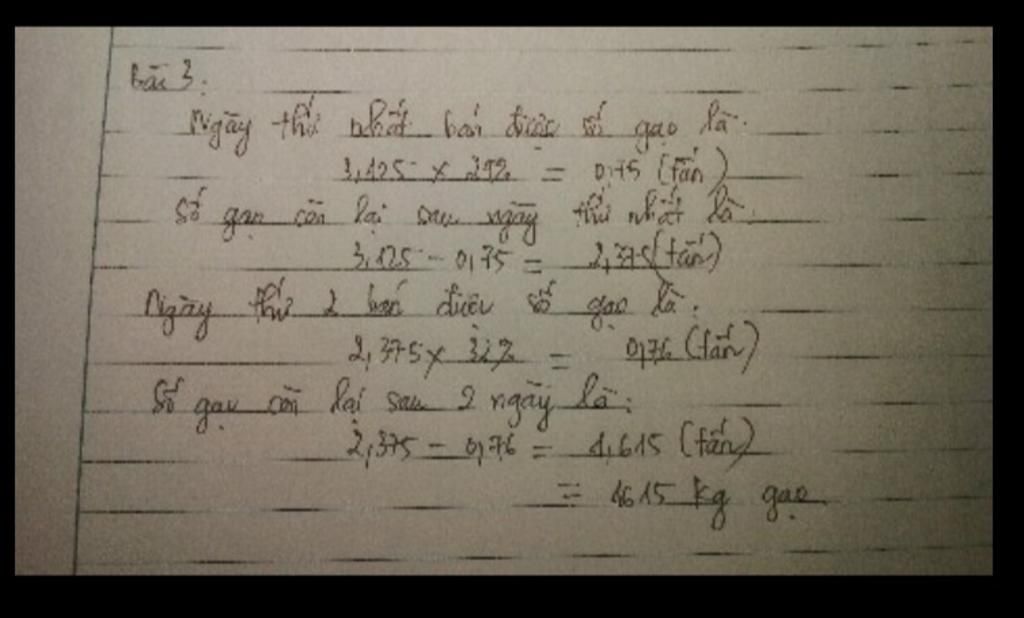 Bài 3:
Ngày thứ nhất bán được số gạo là:
3,125 × 24% = 0,75 (tấn)
Số gạo còn lại sau ngày thứ nhất là:
3,125 - 0,75 = 2,375 (tấn)
Ngày thứ 2 bán được số gạo là:
2,375 × 32% = 0,76 (tấn)
Số gạo còn lại sau 2 ngày là:
2,375 - 0,76 = 1,615 (tấn)
= 1615 kg gạo